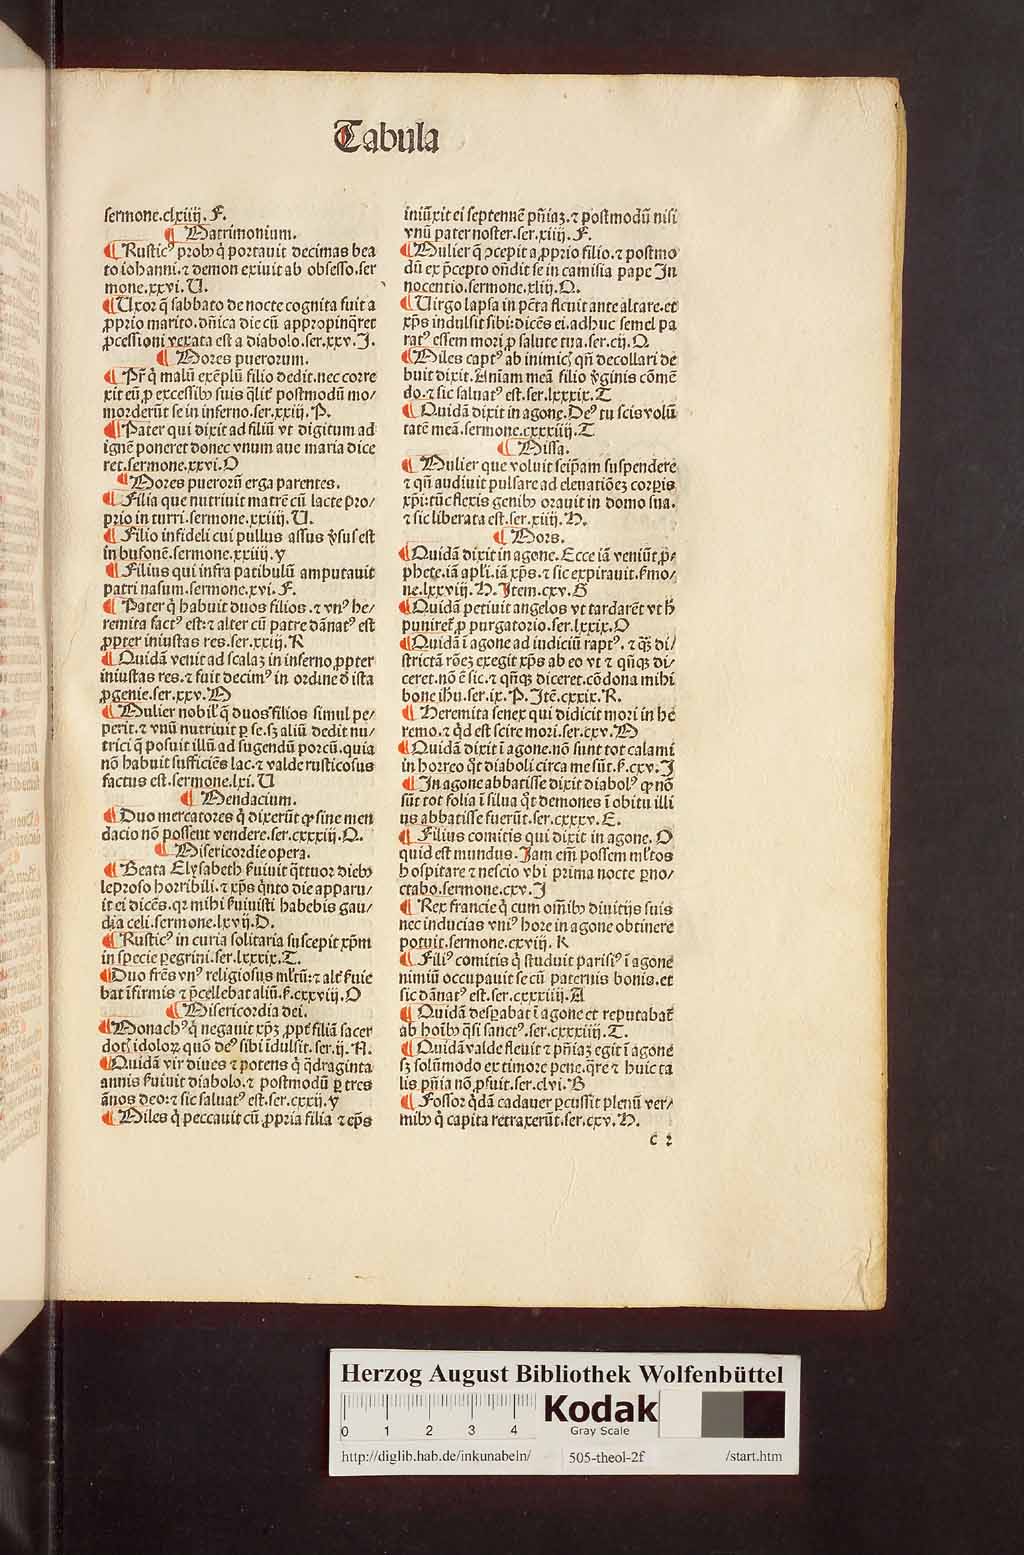 Tabula
sermone.clxiiij. F.
¶ Matrimonium.
¶ Rusticꝰ probꝯ q̇ portauit decimas bea
to iohanni.⁊ demon exiuit ab obsesso.ser
mone.xxvi. U.
¶ Uxor q̃ sabbato de nocte cognita fuit a
ꝓprio marito.dñica die cũ appropinq̃ret
ꝓcessioni vexata est a diabolo.ser.xxv. I.
¶ Mores puerorum.
¶ Pr̃ q̇ malũ exẽplũ filio dedit.nec corre
xit eũ ꝓ excessibꝯ suis q̃lit̃ postmodũ mo/
morderũt se in inferno.ser.xxiij. P.
¶ Pater qui dixit ad filiũ vt digitum ad
ignẽ poneret donec vnum aue maria dice
ret.sermone.xxvi. O
¶ Mores puerorũ erga parentes.
¶ Filia que nutriuit matrẽ cũ lacte pro/
prio in turri.sermone.xxiiij. U.
¶ Filio infideli cui pullus assus v̓sus est
in bufonẽ.sermone.xxiiij. y
¶ Filius qui infra patibulũ amputauit
patri nasum.sermone.xvi. F.
¶ Pater q̇ habuit duos filios.⁊ vnꝰ he/
remita factꝰ est:⁊ alter cũ patre dãnatꝰ est
ꝓpter iniustas res.ser.xxiij. R
¶ Quidã venit ad scalaꝫ in inferno ꝓpter
iniustas res.⁊ fuit decimꝰ in ordine d̓ ista
ꝓgenie.ser.xxv. M
¶ Mulier nobil̕ q̃ duos filios simul pe/
perit.⁊ vnũ nutriuit ꝑ se.sꝫ aliũ dedit nu/
trici q̃ posuit illũ ad sugendũ porcũ.quia
nõ habuit sufficiẽs lac.⁊ valde rusticosus
factus est.sermone.lxi. U
¶ Mendacium.
¶ Duo mercatores q̇ dixerũt ꝙ sine men
dacio nõ possent vendere.ser.cxxxiij. Q.
¶ Misericordie opera.
¶ Beata Elysabeth ẜuiuit q̃ttuor diebꝯ
leproso horribili.⁊ xp̃s q̃nto die apparu/
it ei dicẽs.qꝛ mihi ẜuiuisti habebis gau/
dia celi.sermone.lxvij. D.
¶ Rusticꝰ in curia solitaria suscepit xp̃m
in specie ꝑegrini.ser.lxxxix. T.
¶ Duo frẽs vnꝰ religiosus ml̕tũ:⁊ alt̃ ẜuie
bat ĩfirmis ⁊ p̃cellebat aliũ.ẜ.cxxviij. O
¶ Misericordia dei.
¶ Monachꝰ q̇ negauit xp̃ꝫ ꝓpt̃ filiã sacer
dotꝭ idoloꝝ quõ deꝰ sibi ĩdulsit.ser.ij. A.
¶ Quidã vir diues ⁊ potens q̇ q̃draginta
annis ẜuiuit diabolo.⁊ postmodũ ꝑ tres
ãnos deo:⁊ sic saluatꝰ est.ser.cxxij. y
¶ Miles q̇ peccauit cũ ꝓpria filia ⁊ ep̃s
iniũxit ei septennẽ pñiaꝫ.⁊ postmodũ nisi
vnũ pater noster.ser.xiiij. F.
¶ Mulier q̃ ꝯcepit a ꝓprio filio.⁊ postmo
dũ ex p̃cepto oñdit se in camisia pape In
nocentio.sermone.xliij. Q.
¶ Uirgo lapsa in pctã fleuit ante altare.et
xp̃s indulsit sibi:dicẽs ei.adhuc semel pa
ratꝰ essem mori ꝓ salute tua.ser.cij. Q
¶ Miles captꝰ ab inimicꝭ qñ decollari de
buit dixit.Aniam meã filio v̓ginis cõmẽ
do.⁊ sic saluatꝰ est.ser.lxxxix. T
¶ Quidã dixit in agone.Deꝰ tu scis volũ
tatẽ meã.sermone.cxxxiiij. T.
¶ Missa.
¶ Mulier que voluit seip̃am suspendere
⁊ qñ audiuit pulsare ad eleuatiõeꝫ corꝑis
xp̃i:tũc flexis genibꝯ orauit in domo sua.
⁊ sic liberata est.ser.xiiij. H.
¶ Mors.
¶ Quidã dixit in agone. Ecce iã veniũt ꝓ/
phete.iã apl̕i.iã xp̃s.⁊ sic expirauit.ẜmo/
ne.lxxviij. H. Item.cxv. G
¶ Quidã petiuit angelos vt tardarẽt vt h̓
puniret̃ ꝓ purgatorio.ser.lxxix. O
¶ Quidã ĩ agone ad iudiciũ raptꝰ.⁊ q̃ꝫ di/
strictã rõeꝫ exegit xp̃s ab eo vt ⁊ qñqꝫ di/
ceret.nõ ẽ sic.⁊ qñqꝫ diceret.cõdona mihi
bone ihu.ser.ix. P. Itẽ.cxxix. R.
¶ Heremita senex qui didicit mori in he
remo.⁊ q̇d est scire mori.ser.cxv. M
¶ Quidã dixit ĩ agone.nõ sunt tot calami
in horreo q̊t diaboli circa me sũt.ẜ.cxv. I
¶ In agone abbatisse dixit diabolꝰ ꝙ nõ
sũt tot folia ĩ silua q̊t demones ĩ obitu illi
us abbatisse fuerũt.ser.cxxxv. E.
¶ Filius comitis qui dixit in agone. O
quid est mundus. Iam em̃ possem ml̕tos
hospitare ⁊ nescio vbi prima nocte ꝑno/
ctabo.sermone.cxv. I
¶ Rex francie q̇ cum om̃ibꝯ diuitijs suis
nec inducias vniꝰ hore in agone obtinere
potuit.sermone.cxviij. K
¶ Filiꝰ comitis q̇ studuit parisiꝰ ĩ agone
nimiũ occupauit se cũ paternis bonis.et
sic dãnatꝰ est.ser.cxxxiiij. A
¶ Quidã desꝑabat ĩ agone et reputabat̃
ab hoĩbꝯ q̃si sanctꝰ.ser.cxxxiiij. T.
¶ Quidã valde fleuit ⁊ pñiaꝫ egit ĩ agone
sꝫ solũmodo ex timore pene.q̃re ⁊ huic ta
lis pñia nõ ꝓfuit.ser.clvi. B
¶ Fossor q̇dã cadauer ꝑcussit plenũ ver/
mibꝯ q̇ capita retraxerũt.ser.cxv. H.
c 2
Herzog August Bibliothek Wolfenbüttel
0 1 2 3 4 Kodak
Gray Scale
http://diglib.hab.de/inkunabeln/ 505-theol-2f /start.htm